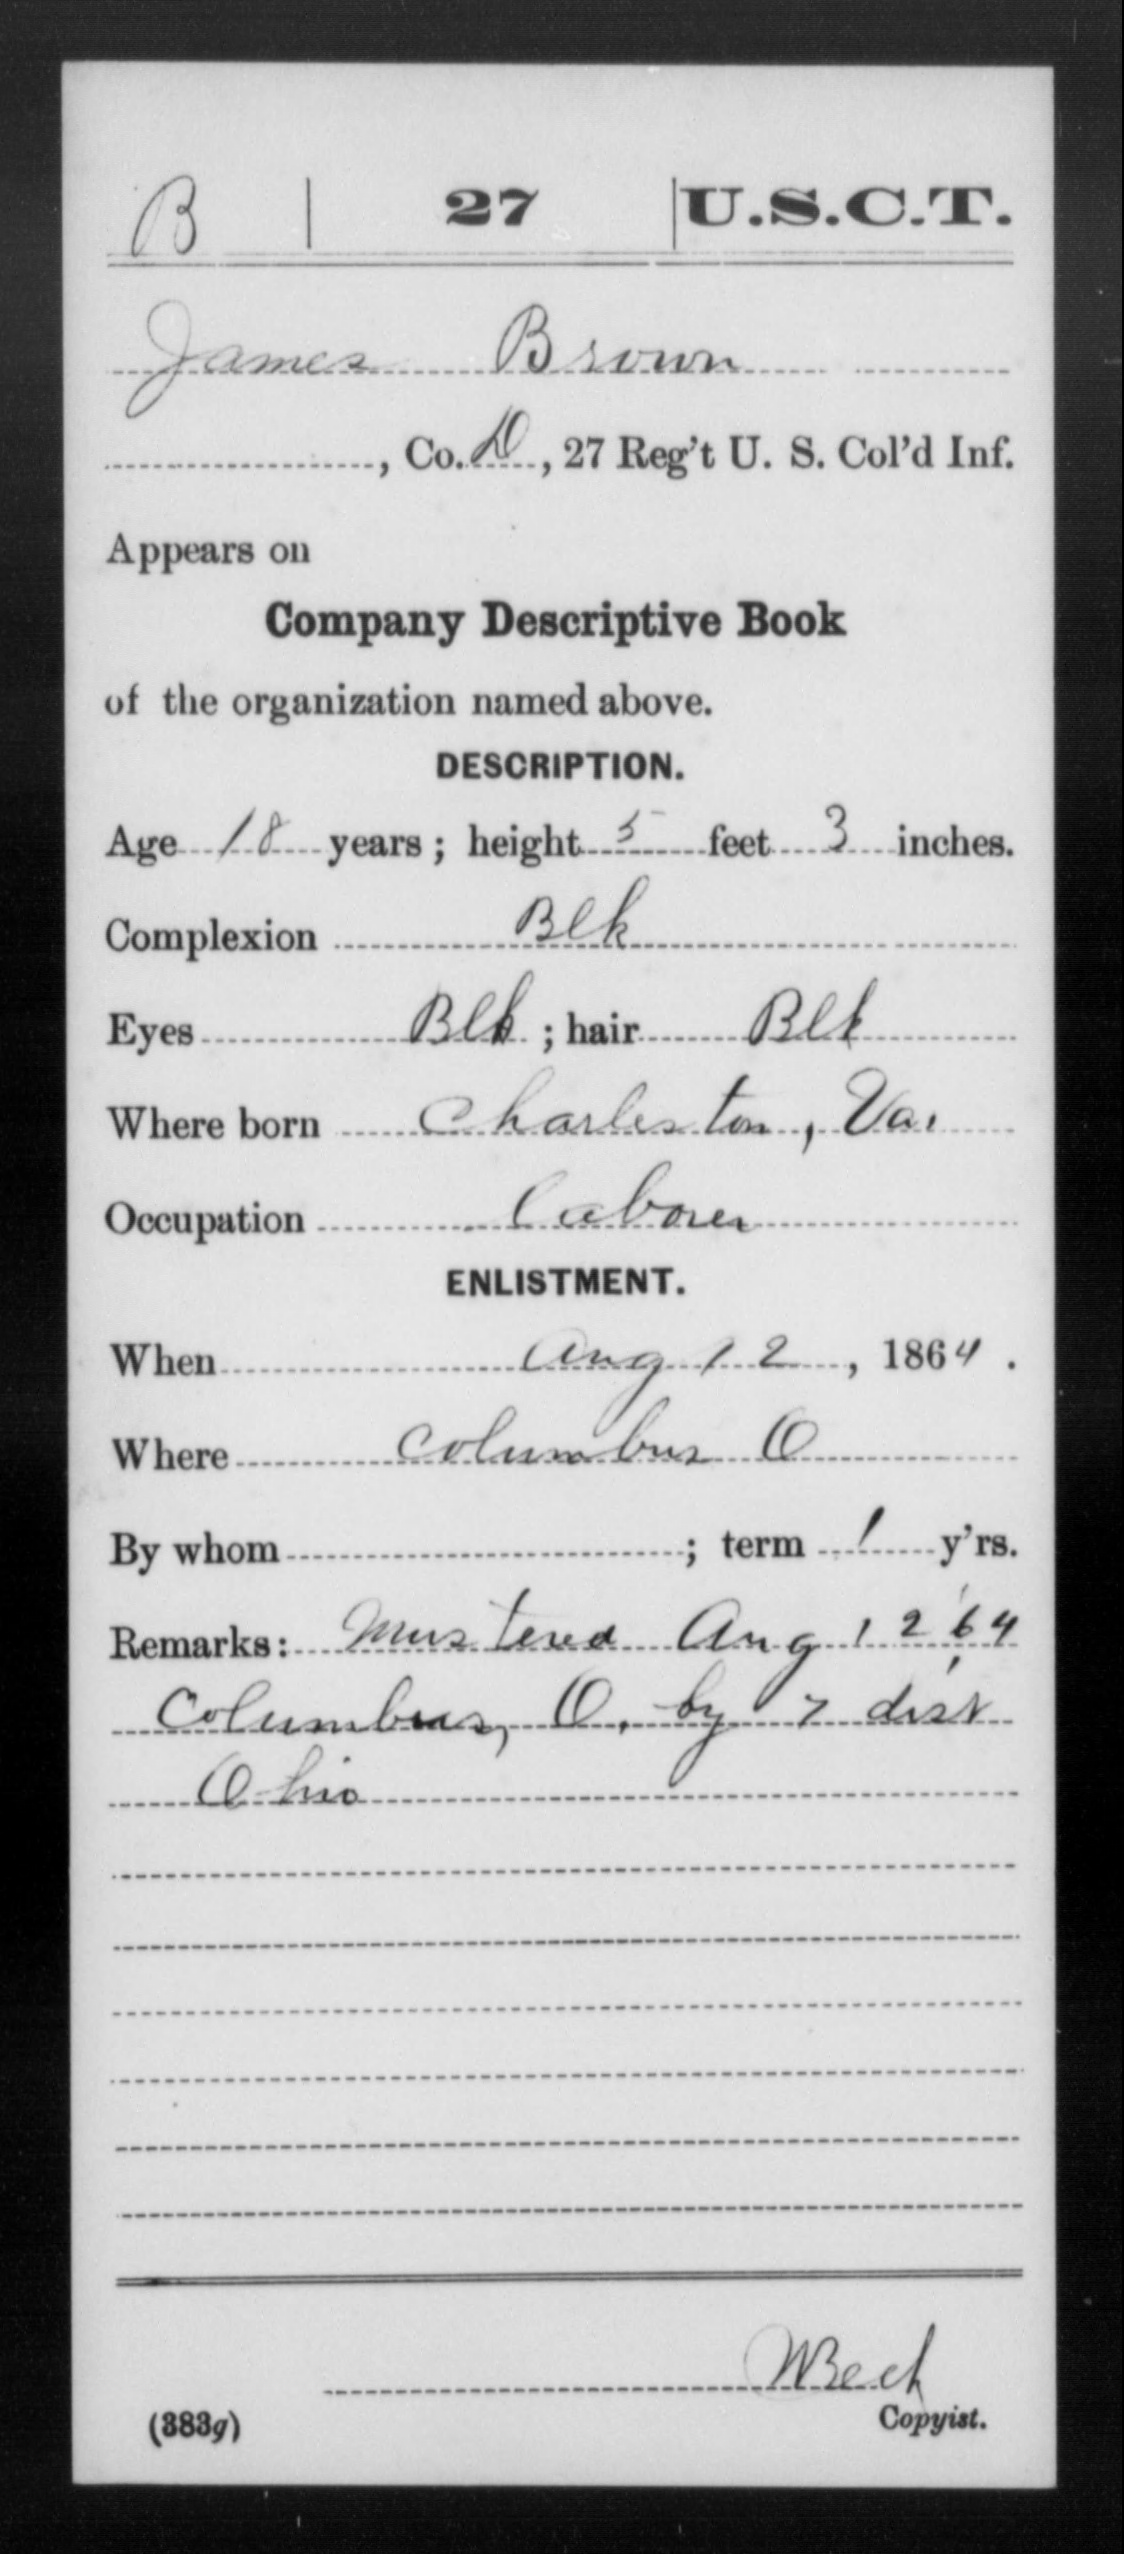 B | 27 | U.S.C.T.
James Brown
, Co. D, 27 Reg't U. S. Col'd Inf.
Appears on
Company Descriptive Book
of the organization named above.
DESCRIPTION.
Age 18 years; height 5 feet 3 inches.
Complexion Blk
Eyes Blk; hair Blk
Where born Charleston, Va.
Occupation laborer
ENLISTMENT.
When Aug 12, 1864.
Where Columbus O
By whom ; term 1 y'rs.
Remarks: Mustered Aug 12, '64
Columbus, O. by 7 dist
Ohio
(383g)
Copyist.